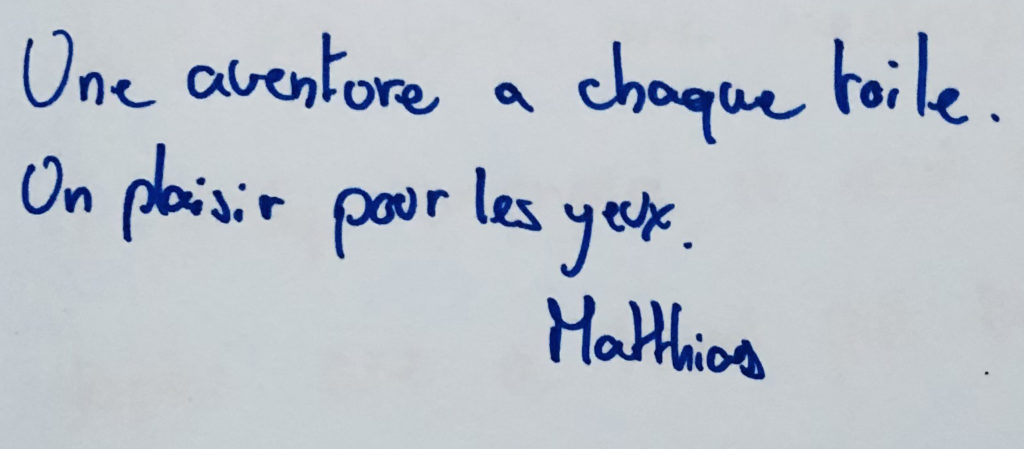 Une aventure a chaque toile.
Un plaisir pour les yeux.
Matthias